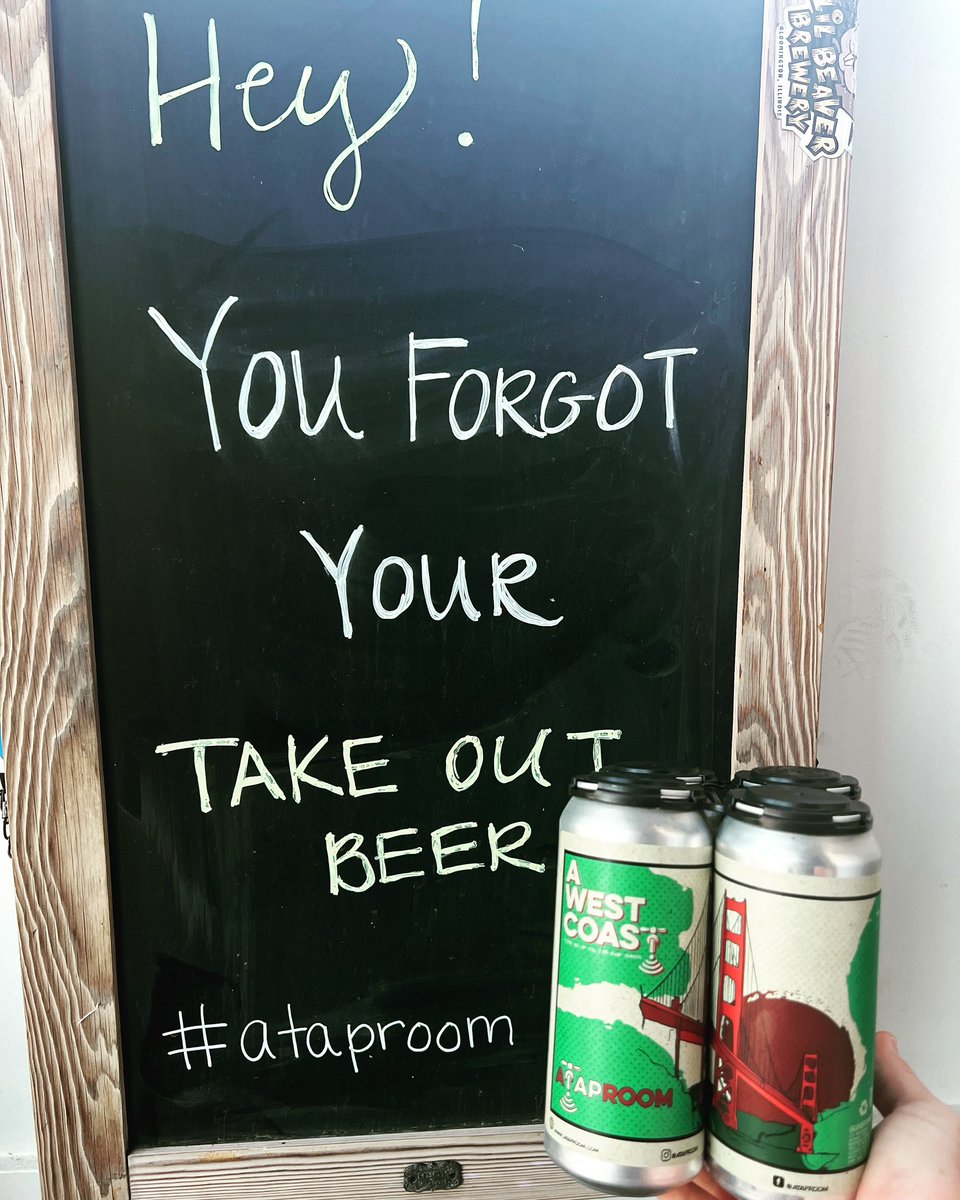 Hey!
LIL BEAVER
BREWERY
BLOOMINGTON, ILLINOIS
YOU FORGOT
YOUR
TAKE OUT
BEER
#ataproom
A
WEST
COAST
ATAPROOM
WWW.ATAPROOM.COM
@ATAPROOM
@ATAPROOM